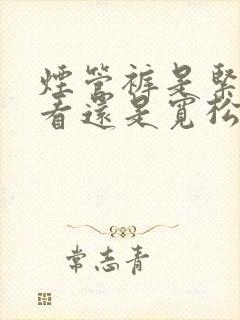 煙管裤是緊
看還是寬松
常志青